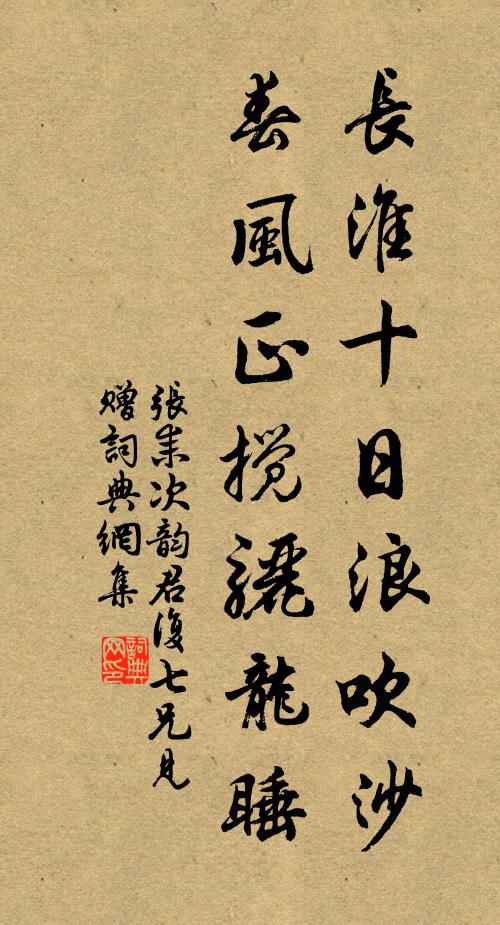 長淮十日浪吹沙
春風正攪驪龍睡
張耒次韵君復七兄見
贈詞典網集
詞典网印